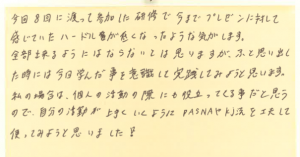 今回8回に渡って参加した研修で今までプレゼンに対して
感じていたハードル層が低くなったような気がします。
全部出来るようにはならないとは思いますが、ふと思い出し
た時には今日学んだ事を意識して実践してみようと思います。
私の場合は、個人の活動の際にも役立ってくる事だと思う
ので、自分の活動が上手くいくようにPASNAやFJ法を工夫して
使ってみようと思いました!